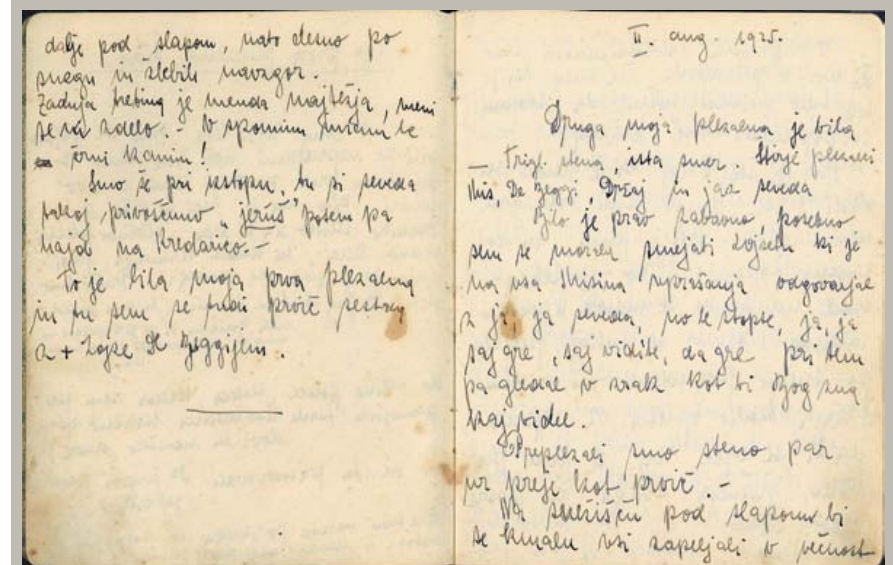 dalje pod slapom, nato desno po
snegu in žlebih navzgor.
Zadnja trebina je menda najtežja, meni
se ni zdelo. – V spominu mi le
črni kamin!
Smo še pri vstopu, tu si seveda
takoj privoščimo "jeruš" potem pa
hajd na Kredarico. –
To je bila moja prva plezalna
in tu sem se tudi prvič
+ Lojze De Reggijem.
II. aug. 1925.
Druga moja plezalna je bila
– Trigl. stena ista smer. Štirje plezalci
Mis, De Reggi, Držaj in jaz seveda
Bilo je prav zabavno, posebno
sem se morala smejati Lojzetu ki je
na vsa Mišina vprašanja odgovarjal
z ja, ja seveda, no le stopte, ja, ja
saj gre, saj vidite, da gre pri tem
pa gledal v zrak kot bi Bog zna
kaj videl.
Preplezali smo steno par
ur preje kot prvič. –
Na snežišču pod slapom bi
se kmalu vsi zapeljali v večnost